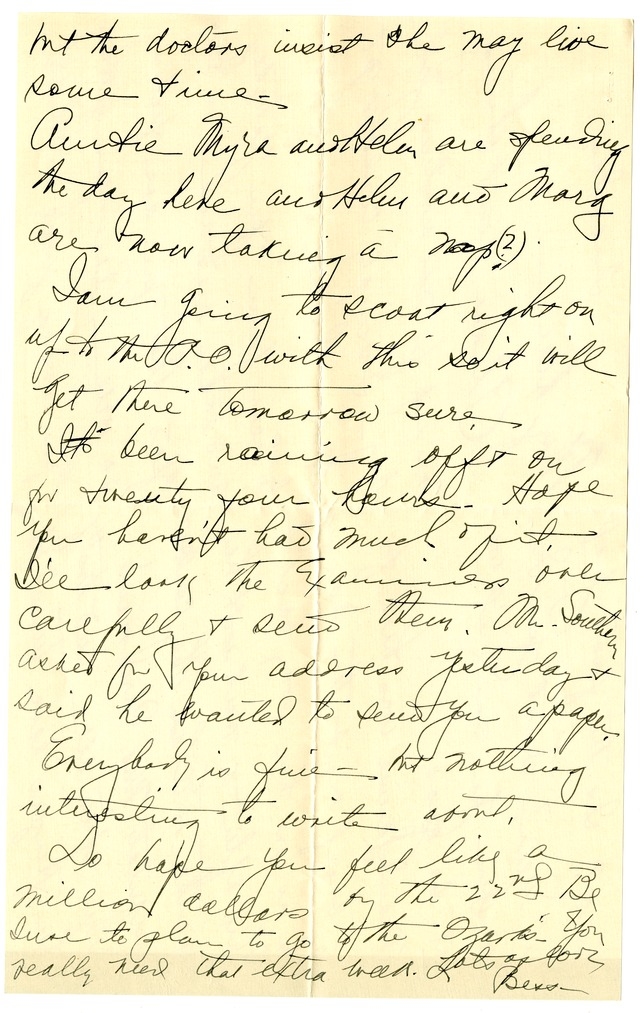 but the doctors insist she may live
some time -
Auntie Myra and Helen are spending
the day here and Helen and Marg
are now taking a nap (?).
I am going to scoot right on
up to the P.O. with this so it will
get there tomorrow sure.
It's been raining off & on
for twenty four hours. Hope
you haven't had much of it.
I'll look the Examiners over
carefully & send them. Mr. Southern
asked for your address yesterday &
said he wanted to send you a paper.
Everybody is fine - but nothing
interesting to write about.
Do hope you feel like a
million dollars on the 22nd Be
sure to plan to go to the Ozarks - You
really need that extra week. Lots of love,
Bess -